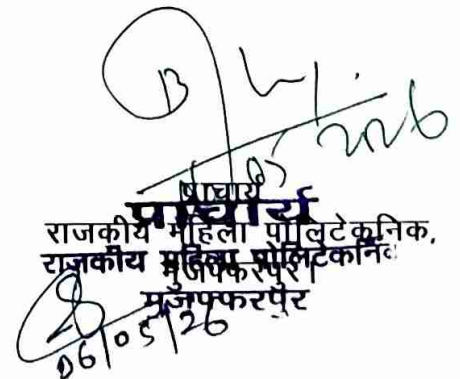 2026
प्राचार्य
प्राचार्य
राजकीय महिला पोलिटेकनिक,
राजकीय महिला पोलिटेकनिक
मुजफ्फरपुर।
मुजफ्फरपुर
06/05/26